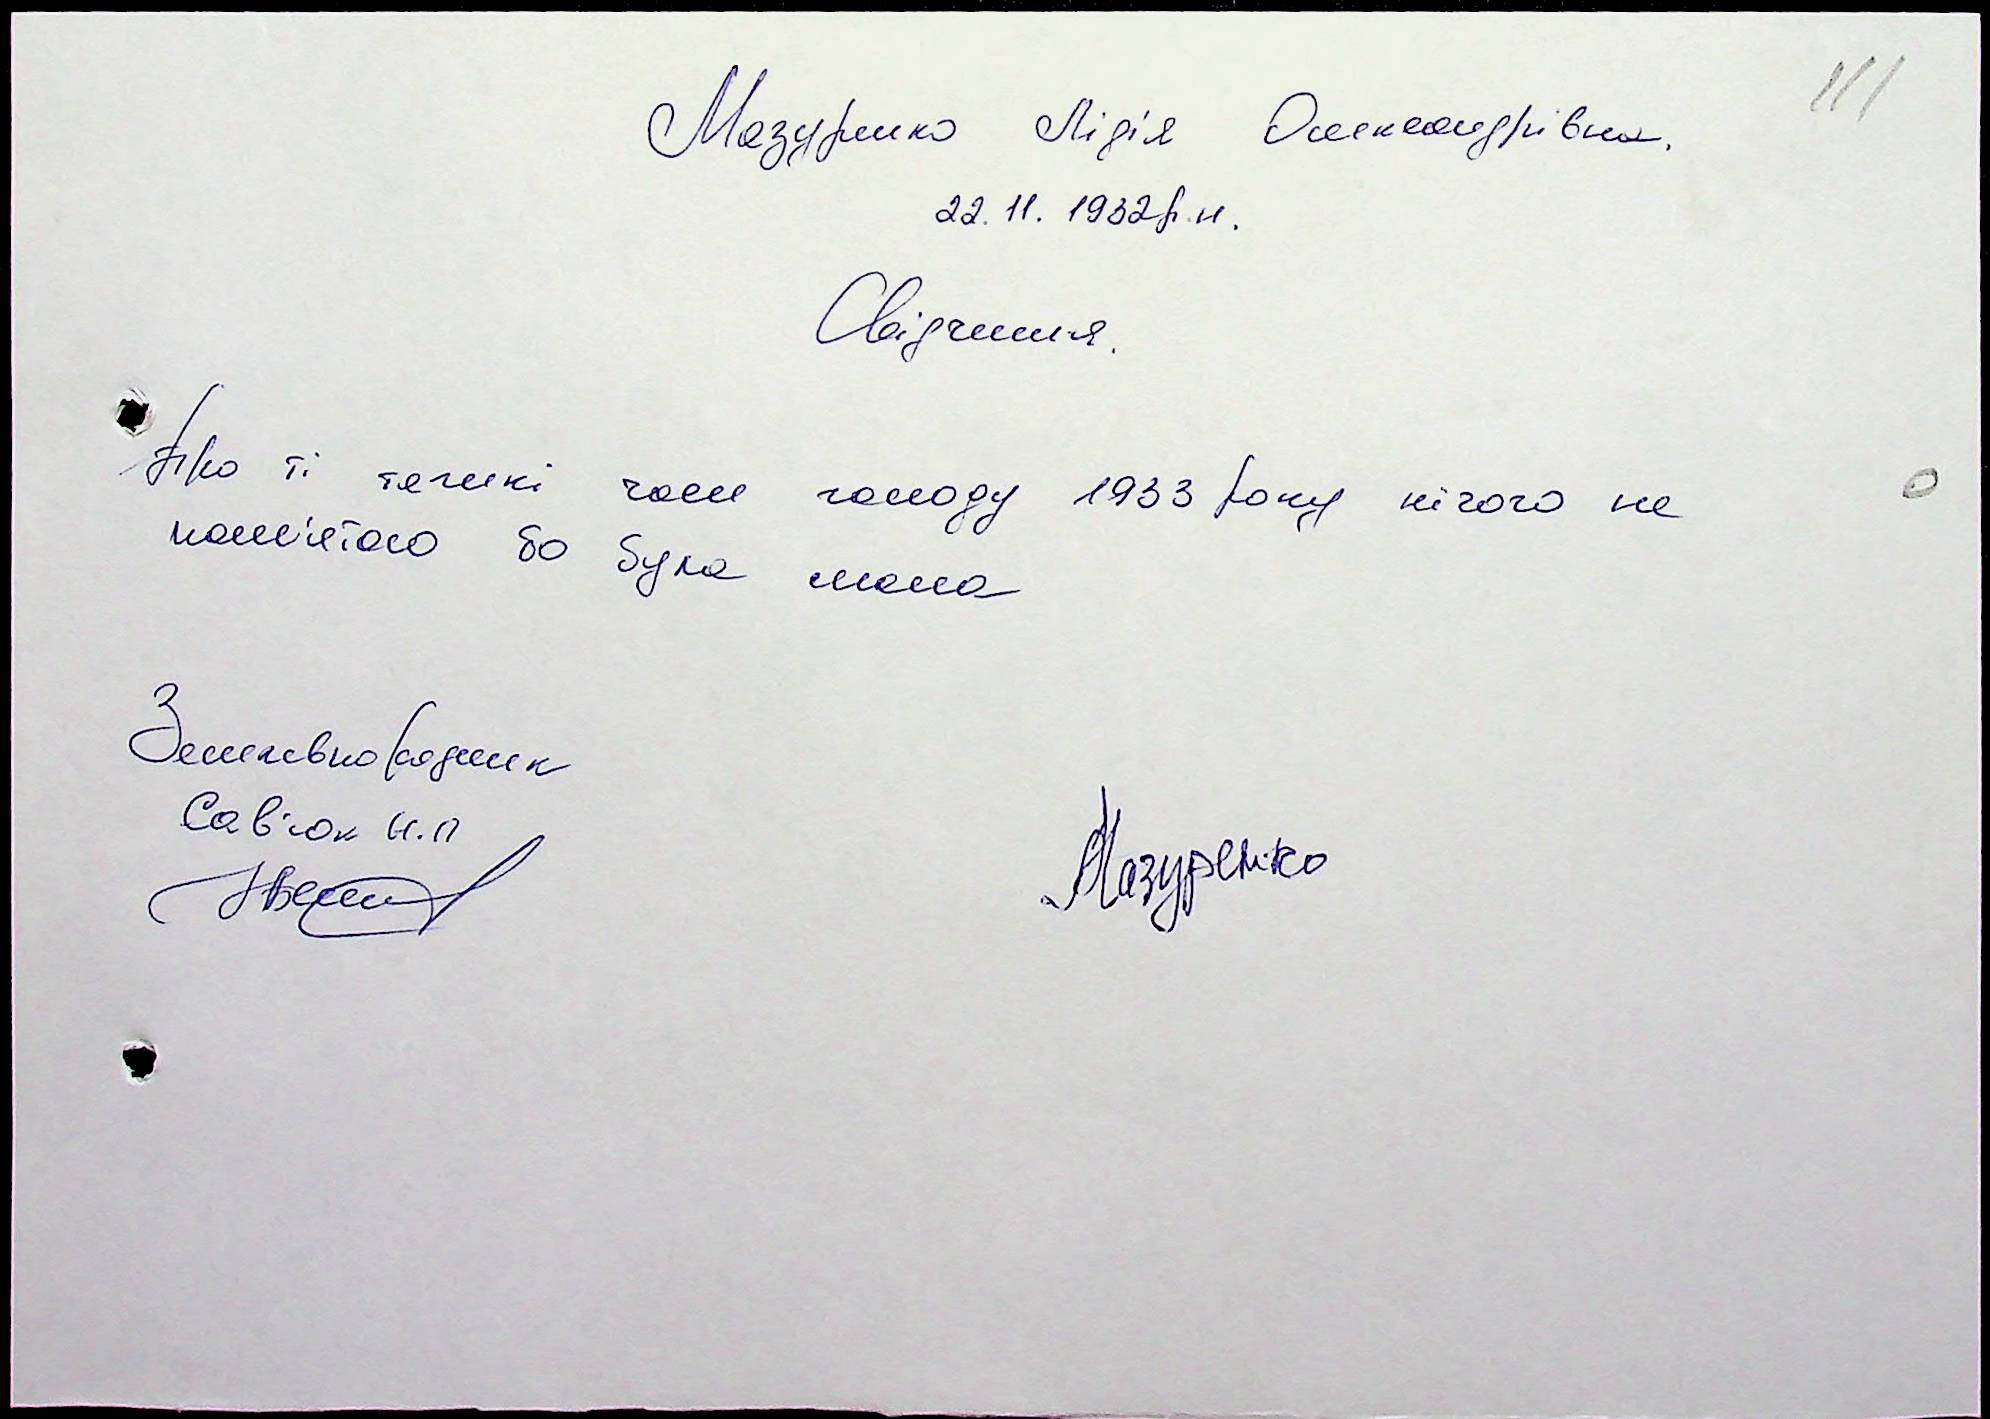 111
Мазуренко Лідія Олександрівна.
22.11.1932 р.н.
Свідчення.
Про ті тяжкі часи голоду 1933 року нічого не
пам'ятаю бо була мала
0
Землевпорядник
Сав'юк Н.П
Мазуренко